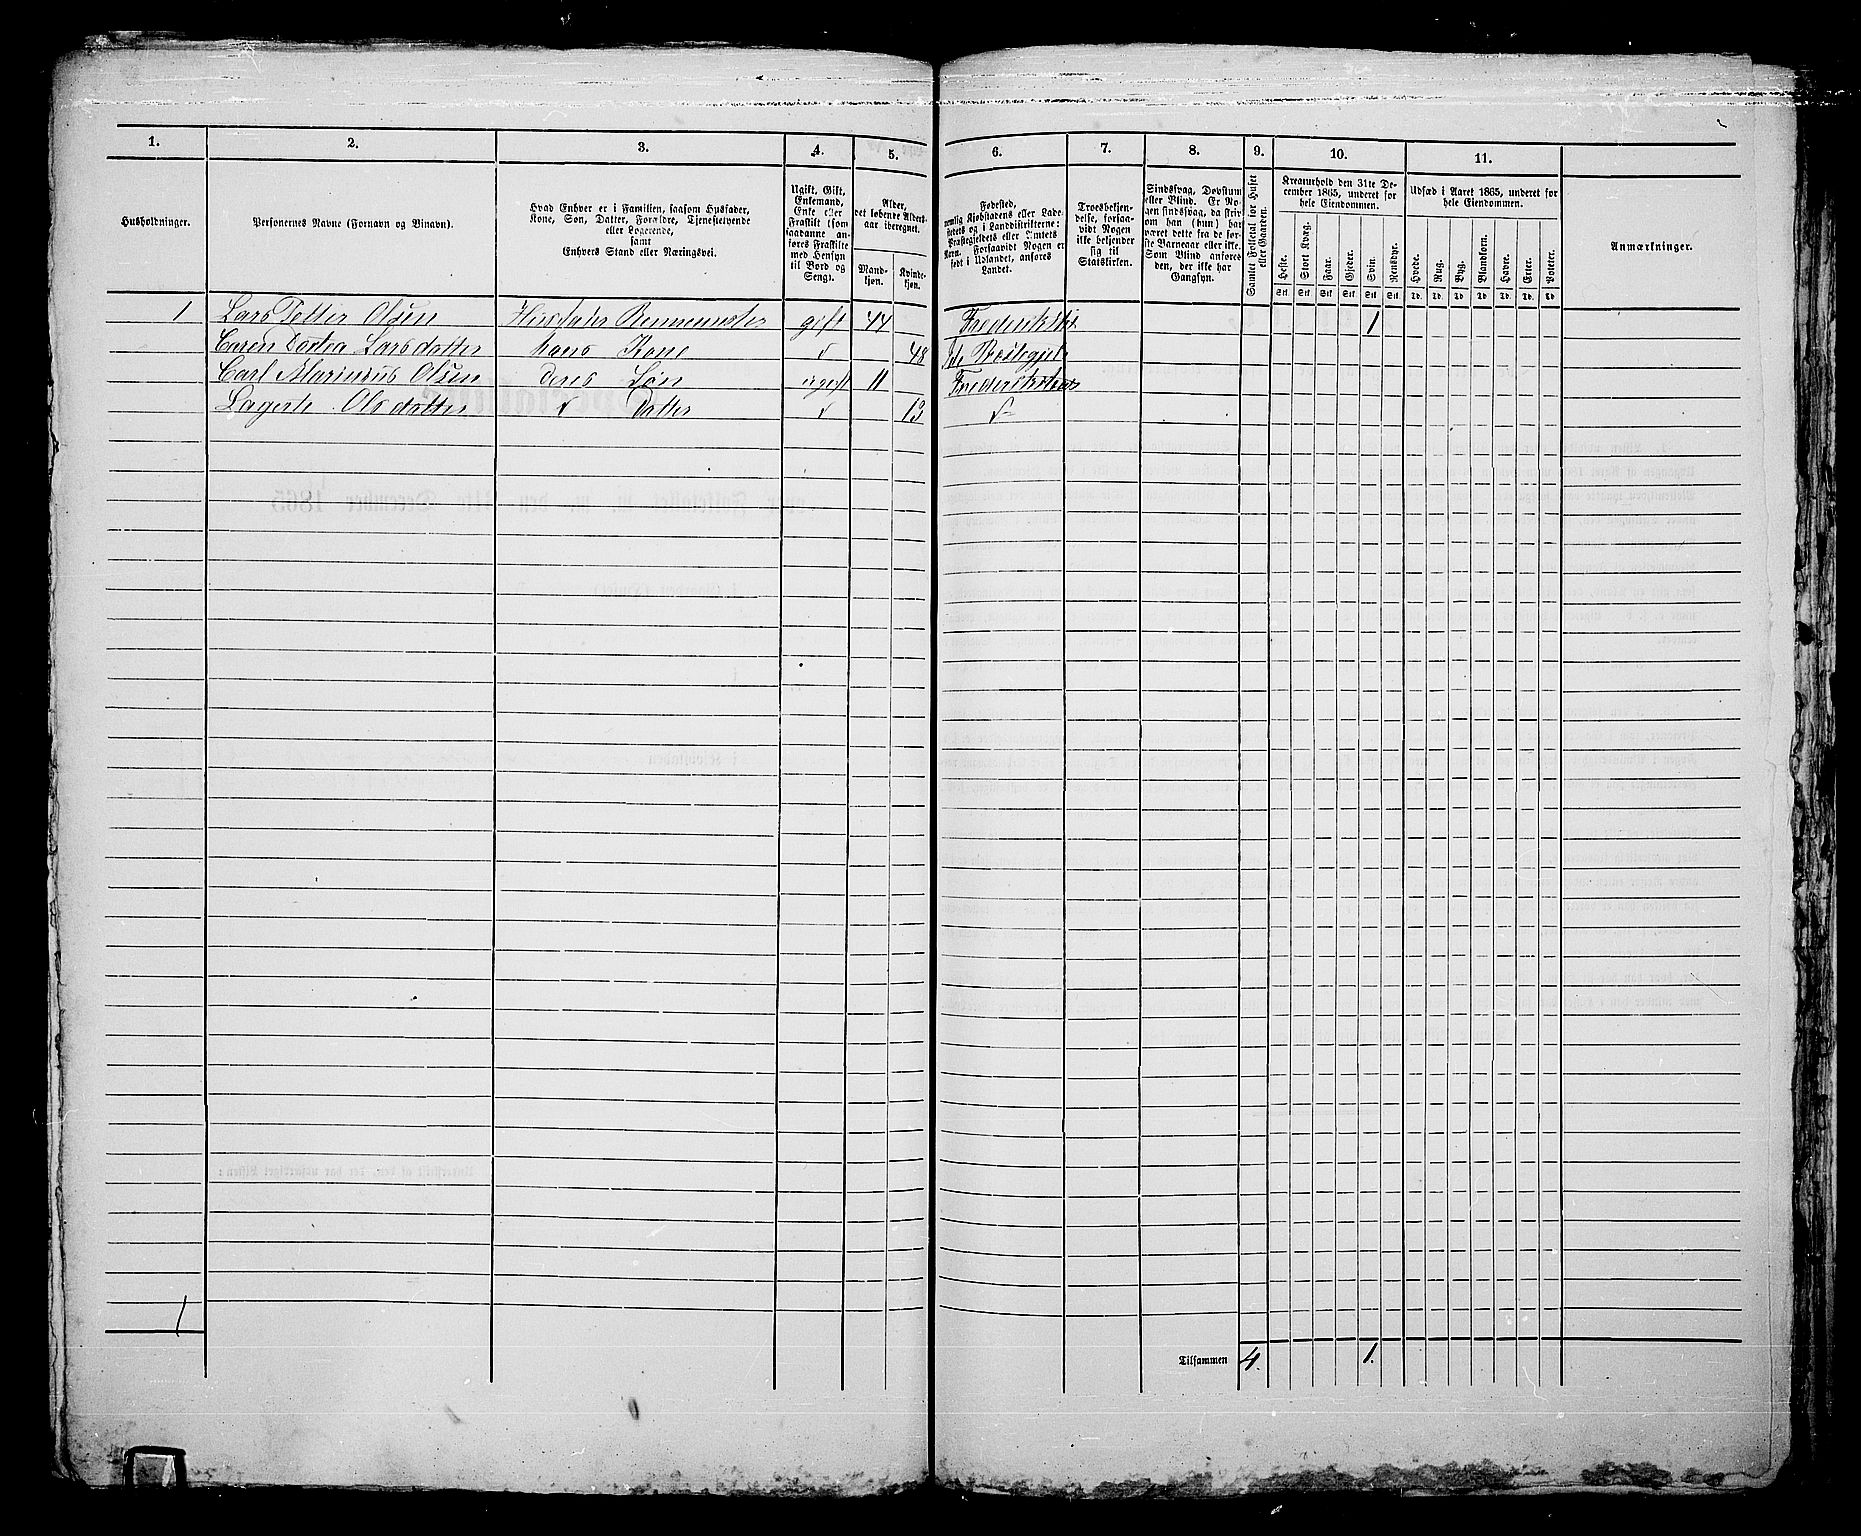 1.
2.
3.
4.
5.
6.
7.
8.
9.
10.
11.
Husholdninger.
Personernes Navne (Fornavn og Binavn).
Hvad Enhver er i Familien, saasom Husfader,
Kone, Søn, Datter, Forældre, Tjenestetyende
eller Logerende,
samt
Enhvers Stand eller Næringsvei.
Ugift, Gift,
Enkemand,
Enke eller
Fraskilt (som
saadanne an-
føres Fraskilte
med Hensyn
til Bord og
Seng).
Alder,
det løbende Alders-
aar iberegnet.
Mand-
kjøn.
Kvinde-
kjøn.
Fødested,
nemlig Kjøbstadens eller Lade-
stedets og i Landdistrikterne:
Præstegjeldets eller Amtets
Navn. Forsaavidt Nogen er
født i Udlandet, anføres
Landet.
Troesbekjen-
delse, forsaa-
vidt Nogen
ikke bekjender
sig til
Statskirken.
Sindssvag, Døvstum
eller Blind. Er No-
gen sindssvag, da skriv
om han (hun) har
været dette fra de før-
ste Barneaar eller ikke.
Som Blind anføres
den, der ikke har
Gangsyn.
Samlet Folketal for Huset
eller Gaarden.
Kreaturhold den 31te De-
cember 1865, underet for
hele Eiendommen.
Heste. Stort Kvæg. Faar. Gjeder. Svin. Rensdyr.
Stk. Stk. Stk. Stk. Stk. Stk.
Udsæd i Aaret 1865, underet for
hele Eiendommen.
Hvede. Rug. Byg. Blandkorn. Havre. Erter. Poteter.
Td. Td. Td. Td. Td. Td. Td.
Anmærkninger.
1 Lars Petter Olsen Huusfader gift 44 Frederikstad 1
Caren Dortea Larsdatter hans Kone " 48
Carl Marinius Olsen Deres Søn ugift 11 Frederikstad
Lagerte Olsdatter " Datter " 13 "
1
Tilsammen 4. 1.